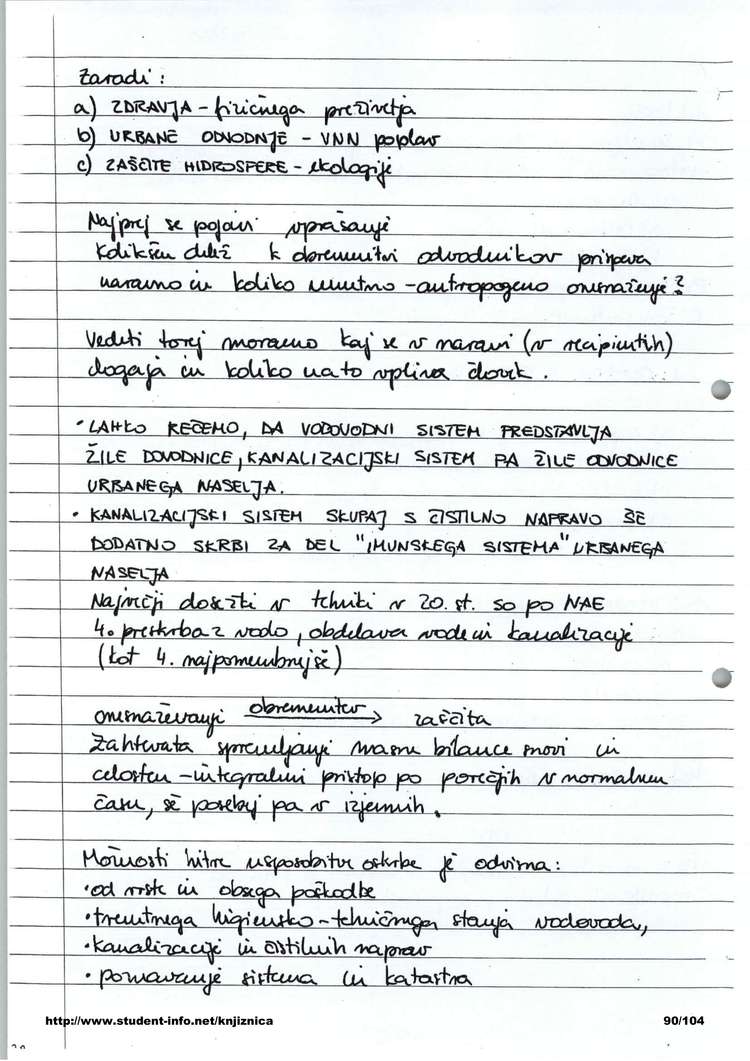 Zaradi:
a) ZDRAVJA - fizičnega preživetja
b) URBANE ODVODNJE - VNN poplav
c) ZAŠČITE HIDROSFERE - ekologije
Najprej se pojavi vprašanje
Kolikšen delež k obremenitvi odvodnikov prispeva
naravno in koliko umetno - antropogeno onesnaženje?
Vedeti torej moramo kaj se v naravi (v recipientih)
dogaja in koliko na to vpliva človek.
• LAHKO REČEMO, DA VODOVODNI SISTEM PREDSTAVLJA
ŽILE DOVODNICE, KANALIZACIJSKI SISTEM PA ŽILE ODVODNICE
URBANEGA NASELJA.
• KANALIZACIJSKI SISTEM SKUPAJ S ČISTILNO NAPRAVO ŠE
DODATNO SKRBI ZA DEL "IMUNSKEGA SISTEMA" URBANEGA
NASELJA
Največji dosežki v tehniki v 20. st. so po NAE
4. preskrba z vodo, obdelava vode in kanalizacije
(kot 4. najpomembnejše)
onesnaževanje obremenitev → zaščita
Zahtevata spremljanje masne bilance snovi in
celosten - integralni pristop po porečjih v normalnem
času, še posebej pa v izjemnih.
Možnosti hitre usposobitve oskrbe je odvisna:
• od vrste in obsega poškodbe
• trenutnega higiensko - tehničnega stanja vodovoda,
• kanalizacije in čistilnih naprav
• poznavanje sistema in katastra
http://www.student-info.net/knjiznica 90/104